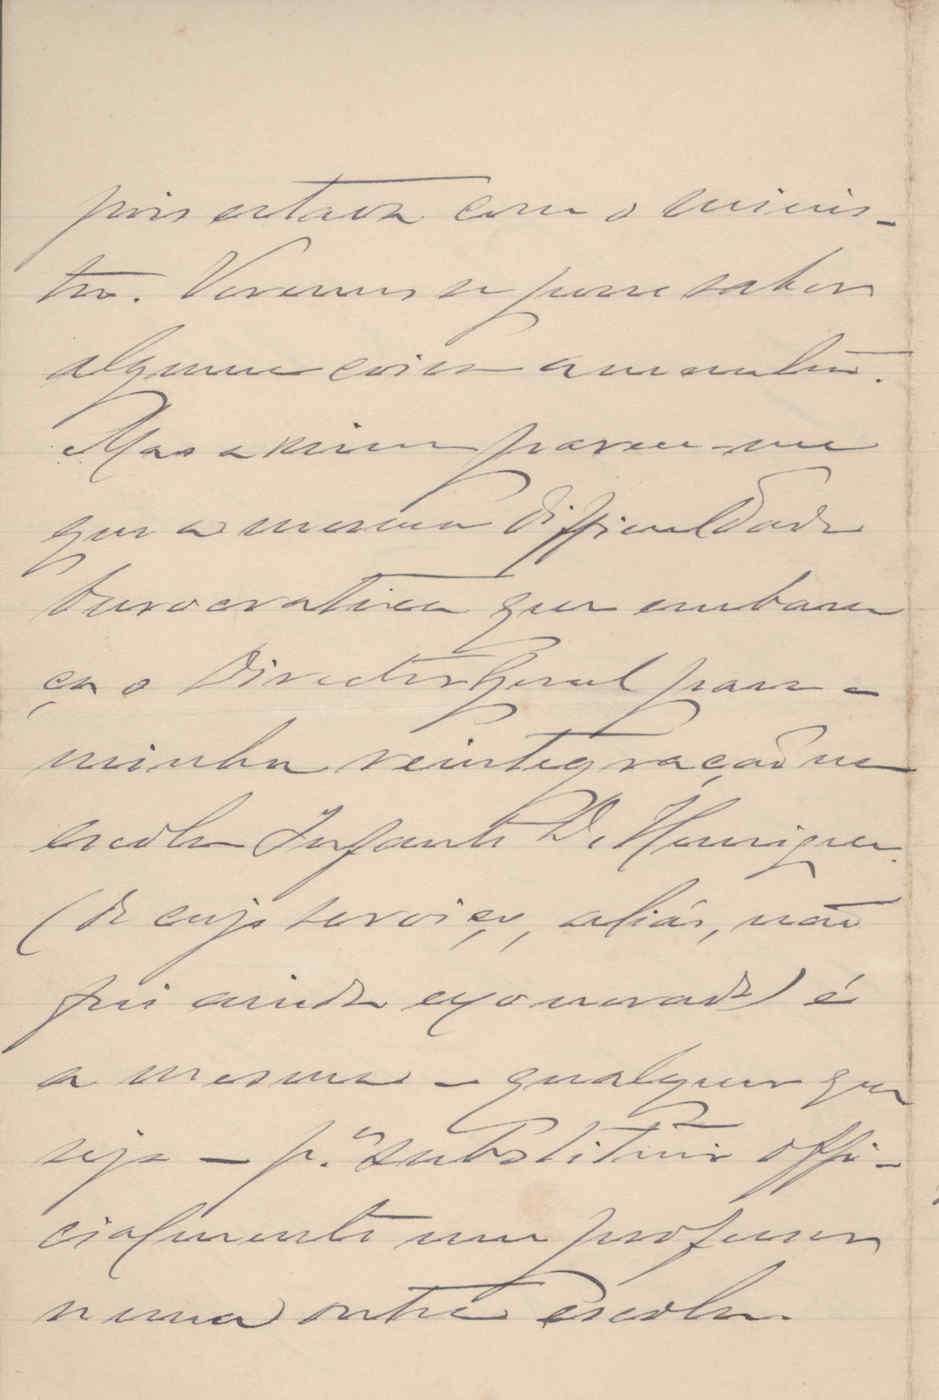 pois estava com o minis-
tro. Veremos se posso saber
alguma coisa amanhã.
Mas a mim parece-me
que a mesma difficuldade
burocratica que embara
ça o Director Geral para a
minha reintegração na
escola Infante D. Henrique
(de cujo serviço, aliás, não
fui ainda exonerado) é
a mesma – qualquer que
seja – p.ª substituir offi-
cialmente um professor
numa outra Escola.